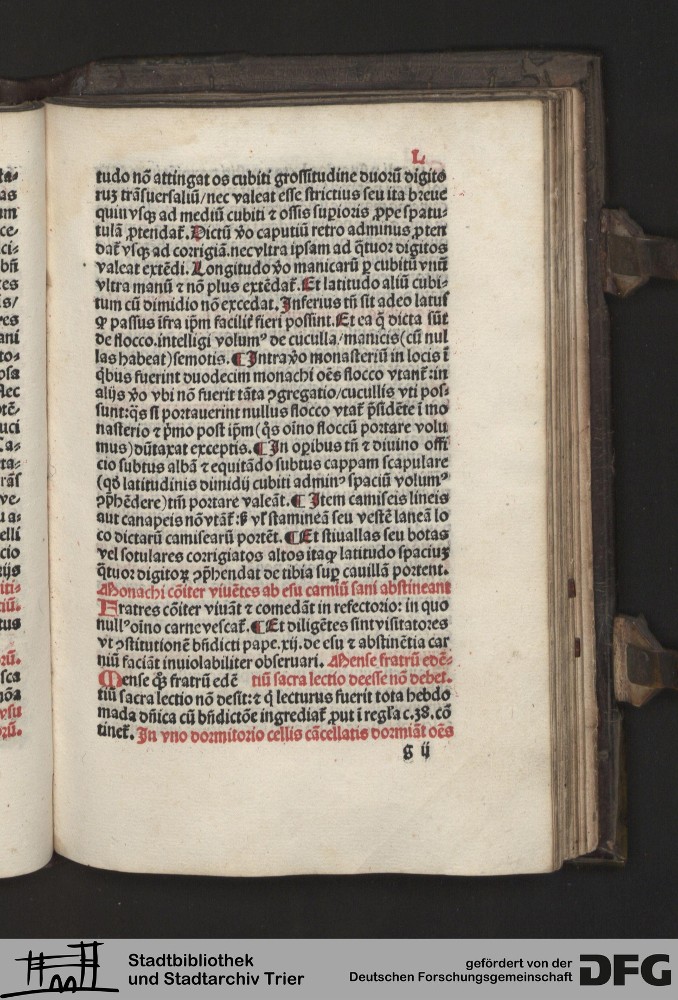 L
tudo nō attingat os cubiti grossitudine duorū digito
ruꝫ trāsuersaliū/nec valeat esse strictius seu ita breue
quin vsqꝫ ad mediū cubiti ⁊ ossis supioris ꝓpe spatu-
tulā ꝓtendat᷑. Dictū v̄o caputiū retro ad minus ꝓten
dat᷑ vsqꝫ ad corrigiā. nec vltra ipsam ad q̄tuor digitos
valeat extēdi. Longitudo v̄o manicarū ꝑ cubitū vnū
vltra manū ⁊ nō plus extēdat᷑. Et latitudo aliū cubi-
tum cū dimidio nō excedat. Inferius tn̄ sit adeo latus
ꝙ passus īfra ip̄m facilit᷑ fieri possint. Et ea q̄ dicta sūt
de flocco. intelligi volumꝰ de cuculla/manicis (cū nul
las habeat) semotis. ¶ Intra v̄o monasteriū in locis ī
q̄bus fuerint duodecim monachi oēs flocco vtant᷑: in
alijs v̄o vbi nō fuerit tāta ꝯgregatio/cucullis vti pos-
sunt: q̄s si portauerint nullus flocco vtat᷑ p̄sidēte ī mo
nasterio ⁊ p̄mo post ip̄m (q̄s oīno floccū portare volu
mus) dūtaxat exceptis. ¶ In oꝑibus tn̄ ⁊ diuino offi
cio subtus albā ⁊ equitādo subtus cappam scapulare
(qd̄ latitudinis dimidij cubiti ad minꝰ spaciū volumꝰ
ꝯp̄hēdere) tm̄ portare valeāt. ¶ Item camiseis lineis
aut canapeis nō vtāt᷑: sꝫ vl̓ stamineā seu vestē laneā lo
co dictarū camisearū portēt. ¶ Et stiuallas seu botas
vel sotulares corrigiatos altos ita qꝫ latitudo spaciuꝫ
q̄tuor digitoꝝ ꝯp̄hendat de tibia suꝑ cauillā portent.
Monachi cōiter viuētes ab esu carniū sani abstineant
Fratres cōiter viuāt ⁊ comedāt in refectorio: in quo
nullꝰ oīno carne vescat᷑. ¶ Et diligētes sint visitatores
vt ꝯstitutionē bn̄dicti pape. xij. de esu ⁊ abstinētia car
niū faciāt inuiolabiliter obseruari. Mense fratrū edē-
Mense qꝫ fratrū edē tiū sacra lectio deesse nō debet.
tiū sacra lectio nō desit: ⁊ q̄ lecturus fuerit tota hebdo
mada dn̄ica cū bn̄dictōe ingrediat᷑ ꝓut ī regl̓a c.38. cō
tinet᷑. In vno dormitorio cellis cācellatis dormiāt oēs
g ij
Stadtbibliothek
und Stadtarchiv Trier
gefördert von der
Deutschen Forschungsgemeinschaft
DFG